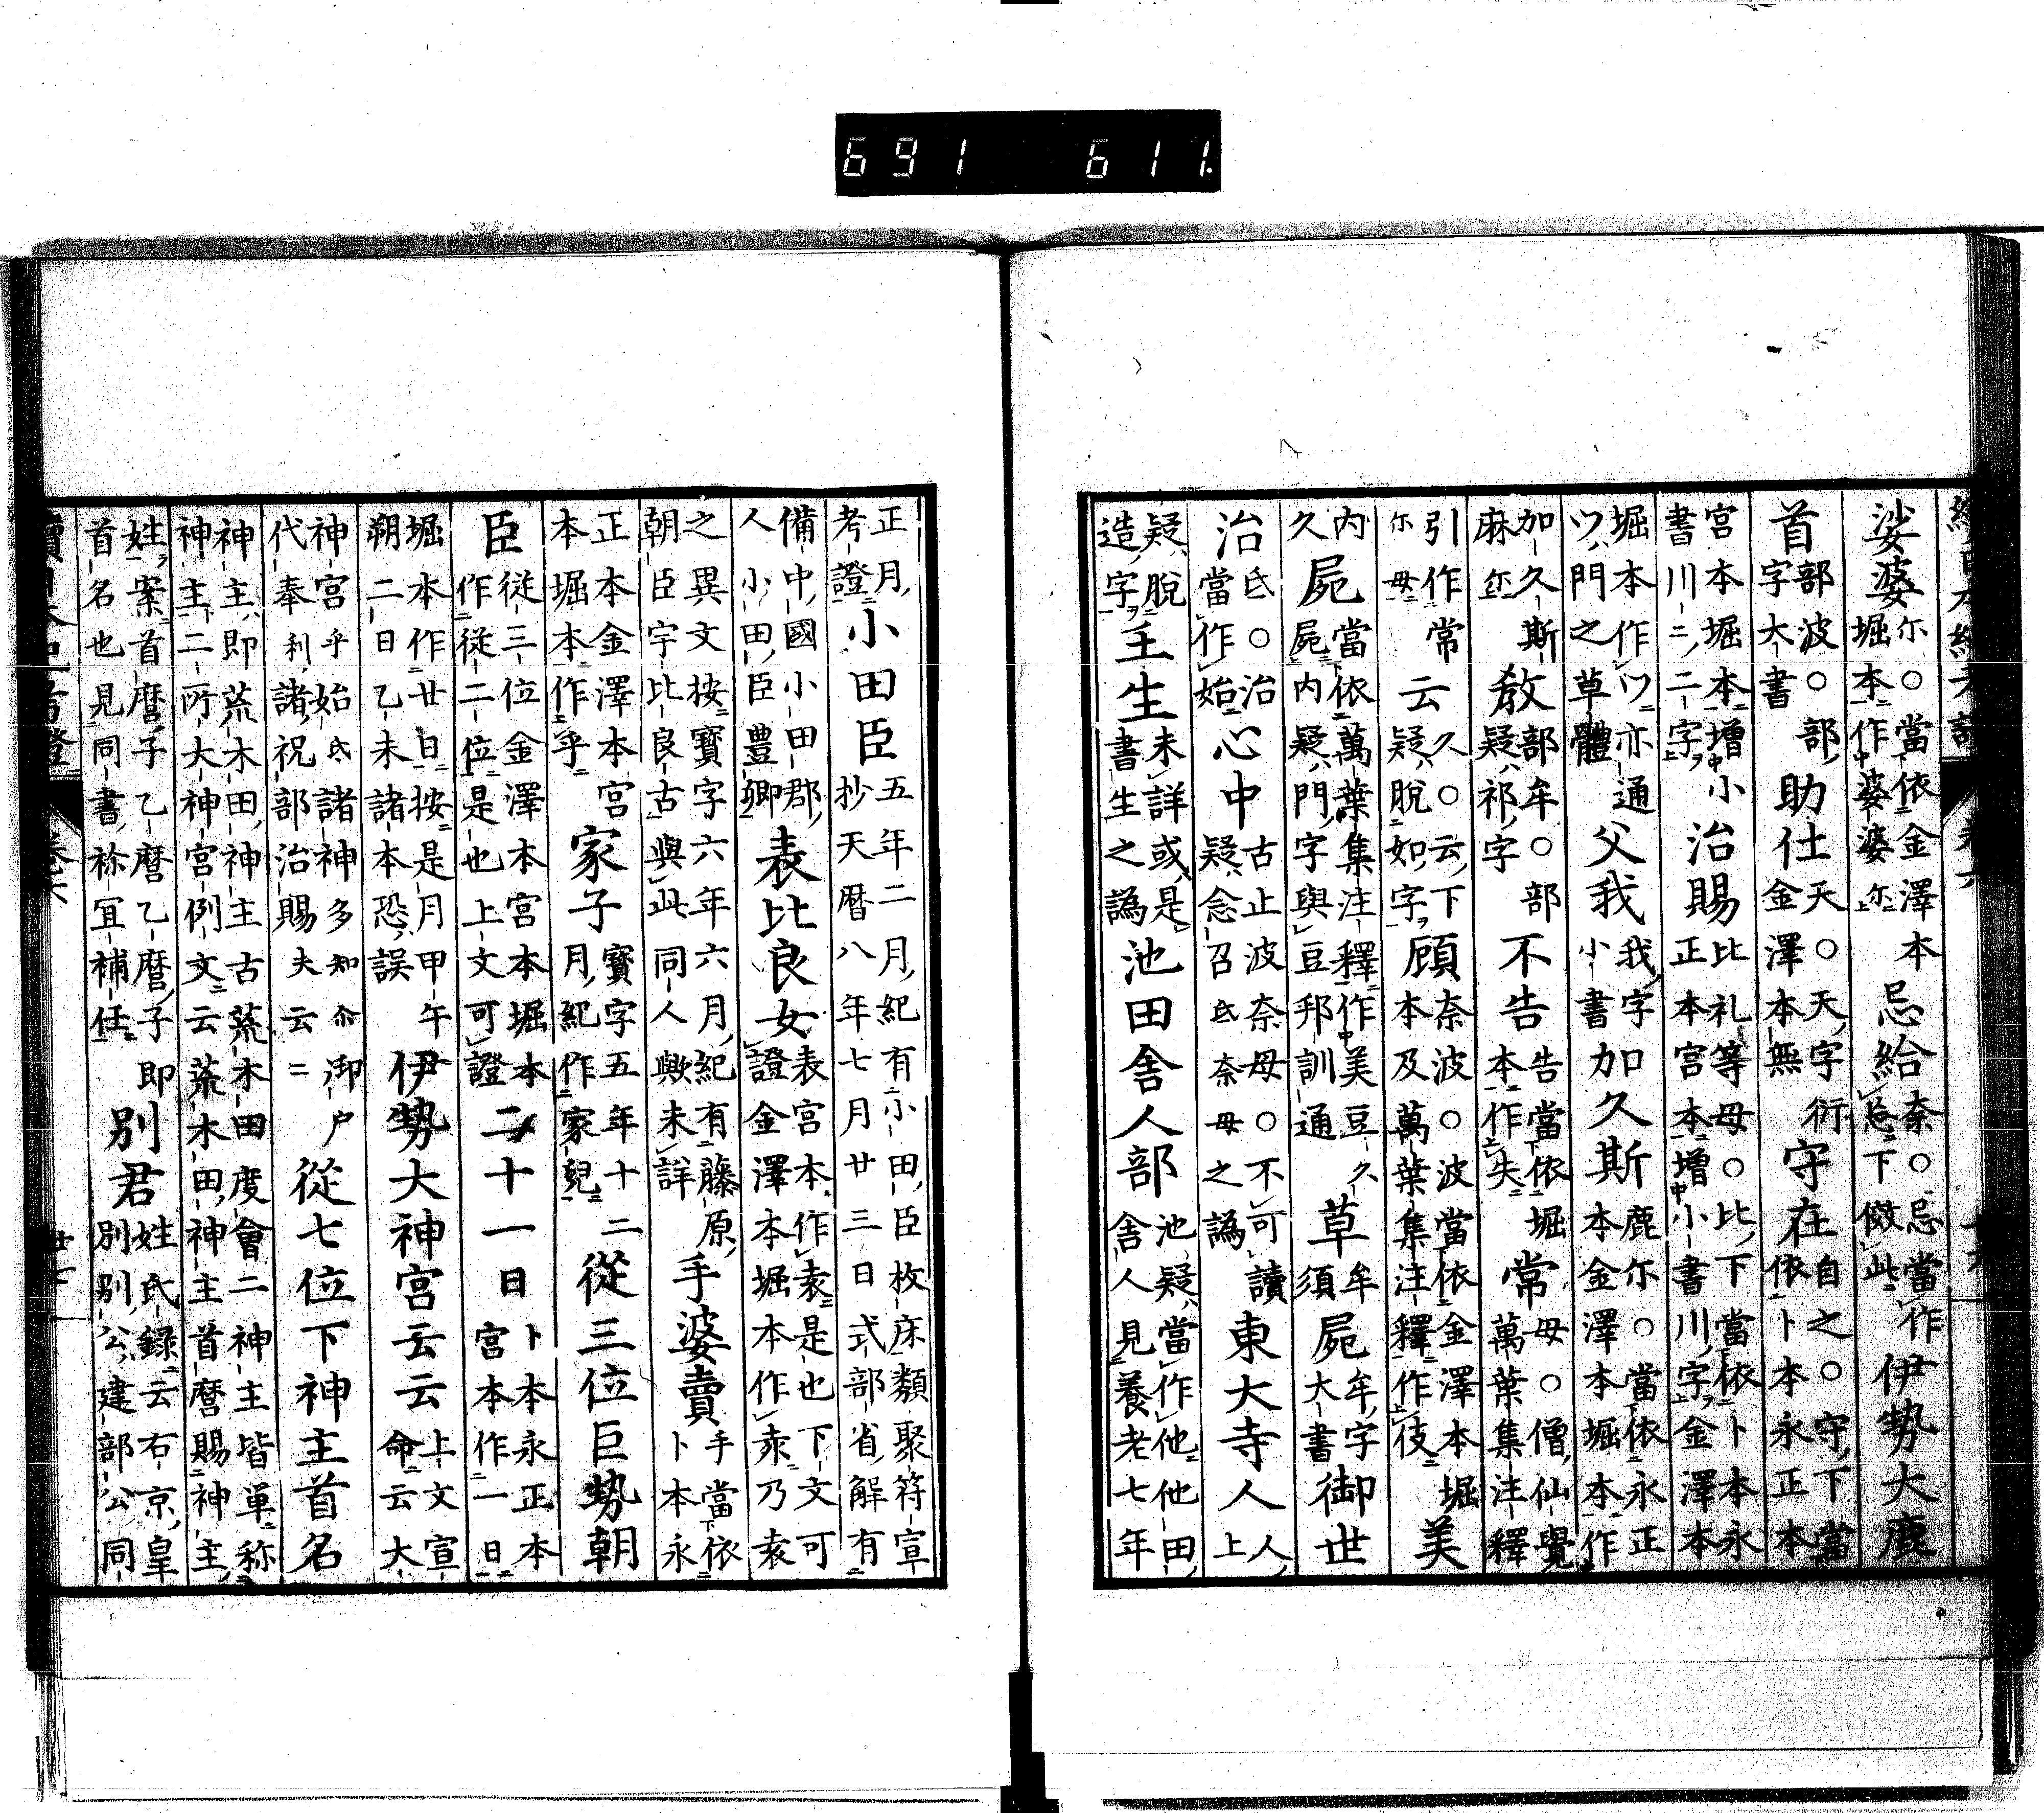 691 611.
娑婆尓○當依金澤本堀本作婆婆尓 忌給奈○忌當作忘下倣此 伊勢大鹿
首部波○部字大書 助仕天○天字衍金澤本無 守在自之○守下當依卜本永正本
宮本堀本增小書川二二字 治賜比礼等母○比下當依卜本永正本宮本增小書川字金澤本
堀本作𪜈亦通門之草體 父我我字小書 加久斯鹿尓○當依永正本金澤本堀本作
加久斯麻尓 教部牟○部疑祁字 不告告當依堀本作失 常母○僧仙覺萬葉集注釋
引作常尓母 云久○云下疑脫如字 顧奈波○波當依金澤本堀本及萬葉集注釋作伎 美
内當依萬葉集注釋作美豆久 屍屍内疑門字與豆邦訓通 草牟須 屍牟字大書 御世
治氐○治當作始 心中古止波奈母○不可讀疑念召氐奈母之譌 東大寺人人上
疑脫造字 王生未詳或是書生之譌 池田舍人部池疑當作他他田舍人見養老七年
正月考證 小田臣五年二月紀有小田臣枚床類聚符宣抄天曆八年七月廿三日式部省解有
備中國小田郡人小田臣豊卿 表比良女表宮本作袁是也下文可證金澤本堀本作𡊮乃袁
之異文按寶字六年六月紀有藤原朝臣宇比良古與此同人歟未詳 手婆賣手當依卜本永
正本金澤本宮本堀本作乎 家子寶字五年十二月紀作家兒 從三位巨勢朝
臣從三位金澤本宮本堀本作從二位是也上文可證 二十一日卜本永正本宮本作一日
堀本作廿日按是月甲午朔二日乙未諸本恐誤 伊勢大神宮云云上文宣命云大
神宮乎始氐諸神多知尓御戸代奉利諸祝部治賜夫云二 從七位下神主首名
神主即荒木田神主古荒木田度會二神主皆單称神主二所大神宮例文云荒木田神主首麿賜神主
姓案首麿子乙麿乙麿子即首名也見同書祢宜補任 別君姓氏録云右京皇別別公建部公同